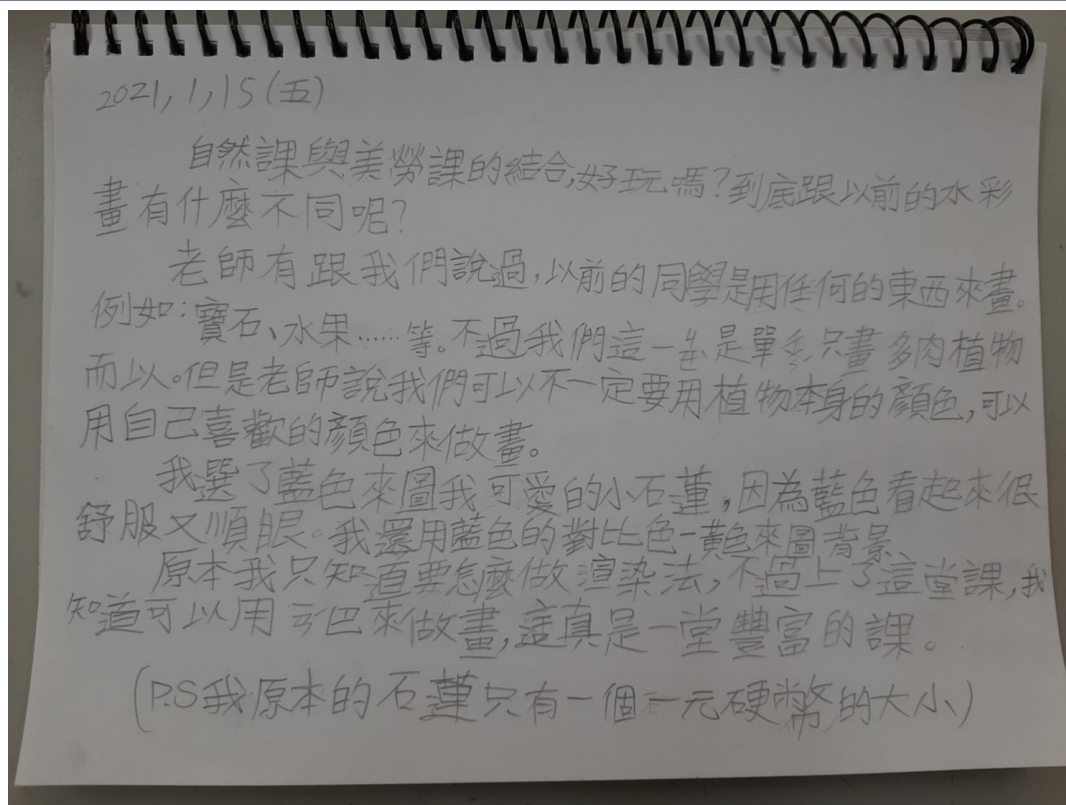 2021,1,15(五)
自然課與美勞課的結合,好玩嗎?到底跟以前的水彩
畫有什麼不同呢?
老師有跟我們說過,以前的同學是用任何的東西來畫。
例如:寶石、水果……等。不過我們這一ㄓㄨ是單ㄔㄨㄣ只畫多肉植物
而以。但是老師說我們可以不一定要用植物本身的顏色,可以
用自己喜歡的顏色來做畫。
我選了藍色來圖我可愛的小石蓮,因為藍色看起來很
舒服又順眼。我還用藍色的對比色-黃色來圖背景
原本我只知道要怎麼做渲染法,不過上了這堂課,我
知道可以用 巴來做畫,這真是一堂豐富的課。
(P.S我原本的石蓮只有一個一元硬幣的大小)